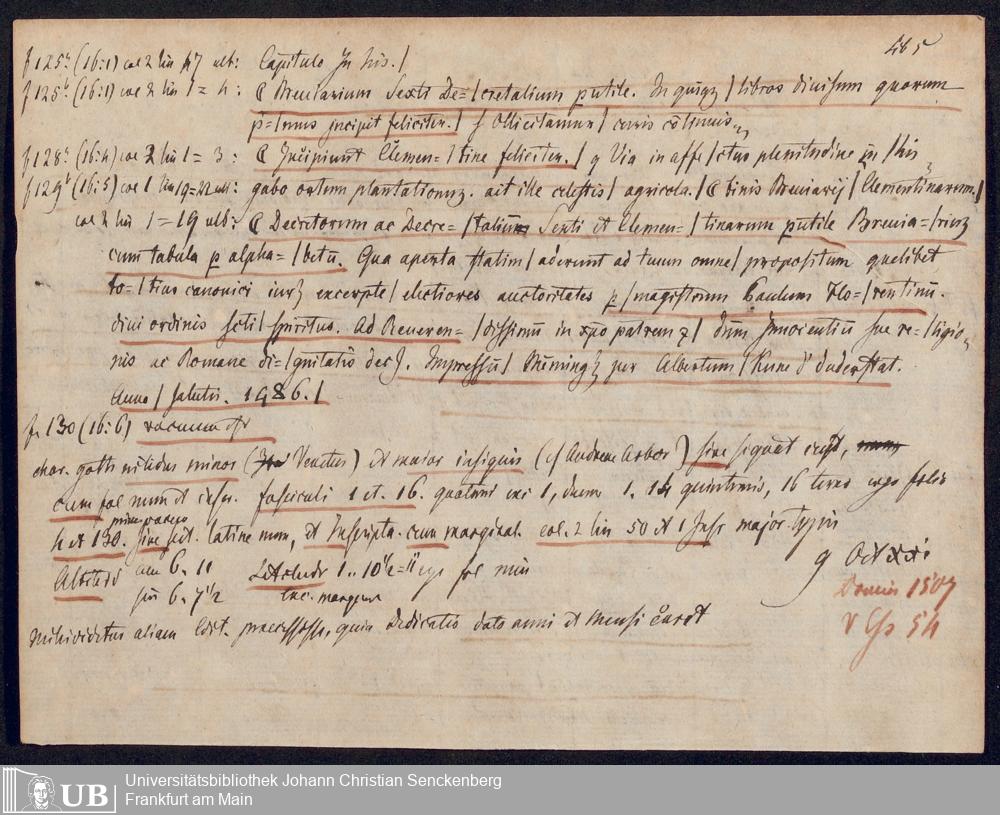 465
f 125ᵃ (16:1) col 2 lin 47 ult: Capitulo In his. /
f 125ᵇ (16:1) col 2 lin 1 = 4: ¶ Breuiarium Sexti De= / cretalium putile. In quīqz / libros diuisum quorum
p= / mus incipit feliciter. / S Ollicitamur / curis cōtinuis
f 128ᵃ (16:4) col 2 lin 1 = 3: ¶ Incipiunt Clemen= / tine feliciter. / q Via in affe / ctus plenitudine in / his
f 129ᵇ (16:5) col 1 lin 19=22 ult: gabo ortum plantationuz. ait ille celestis / agricola. / ¶ binis Breuiarij / Clementinarum. /
col 2 lin 1 = 19 ult: ¶ Decretorum ac Decre= / talium Sexti et Clemen= / tinarum putile Breuia= / riuz
cum tabula p alpha= / betū. Qua aperta statim / aderunt ad tuum omne / propositum quelibet
to= / tius canonici iurz excerpte / electiores auctoritates p / magistrum Paulum Flo= / rentinū.
diui ordinis scti / spiritus. Ad Reueren= / dissimū in xpo patrem / dnm Innocentiū sue re= / ligio
nis ac Romane di= / gnitatis dec. Impressū / Mēmingē per Albertum / Kune d' duderstat.
Anno / salutis. 1486. /
f. 130 (16:6) vacuum est
char. goth nitidus minor (Venetus) et maior insignis (cf Andreae Arbor) sine signat cust,
cum fol num et insn. fasciculi 1 et. 16. quaterni exc 1, duern 1. 14 quinternio, 16 ternio
4 et 130. primo vacuo sine tit. latine num, et Inscripta. cum marginal. col. 2 lin 50 et Insr major. typis
Altitudo cum 6. 11 Latitudo 1.. 10½ = fol min
sine 6. 7½ exc. margine
g Oct xxi
Mihi videtur aliam Edit. praecessisse, quia Dedicatio dato anni et mensi caret
Denis 1507
V Ess 54
Universitätsbibliothek Johann Christian Senckenberg
Frankfurt am Main
UB